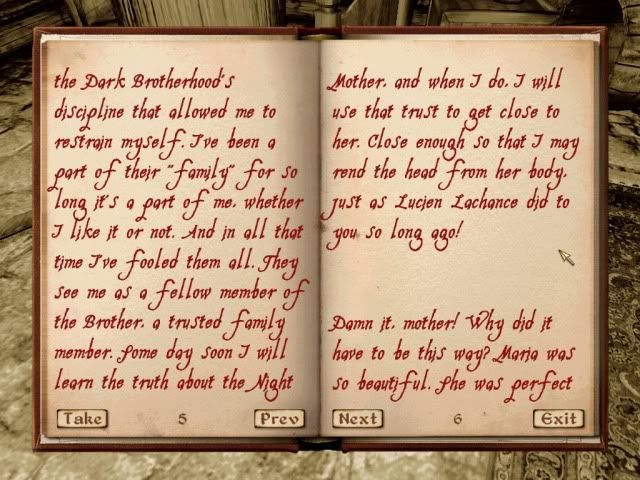 the Dark Brotherhood's
discipline that allowed me to
restrain myself. I've been a
part of their "family" for so
long it's a part of me, whether
I like it or not. And in all that
time I've fooled them all. They
see me as a fellow member of
the Brother, a trusted family
member. Some day soon I will
learn the truth about the Night
Mother, and when I do, I will
use that trust to get close to
her. Close enough so that I may
rend the head from her body,
just as Lucien Lachance did to
you so long ago!
Damn it, mother! Why did it
have to be this way? Maria was
so beautiful. She was perfect
Take 5 Prev Next 6 Exit